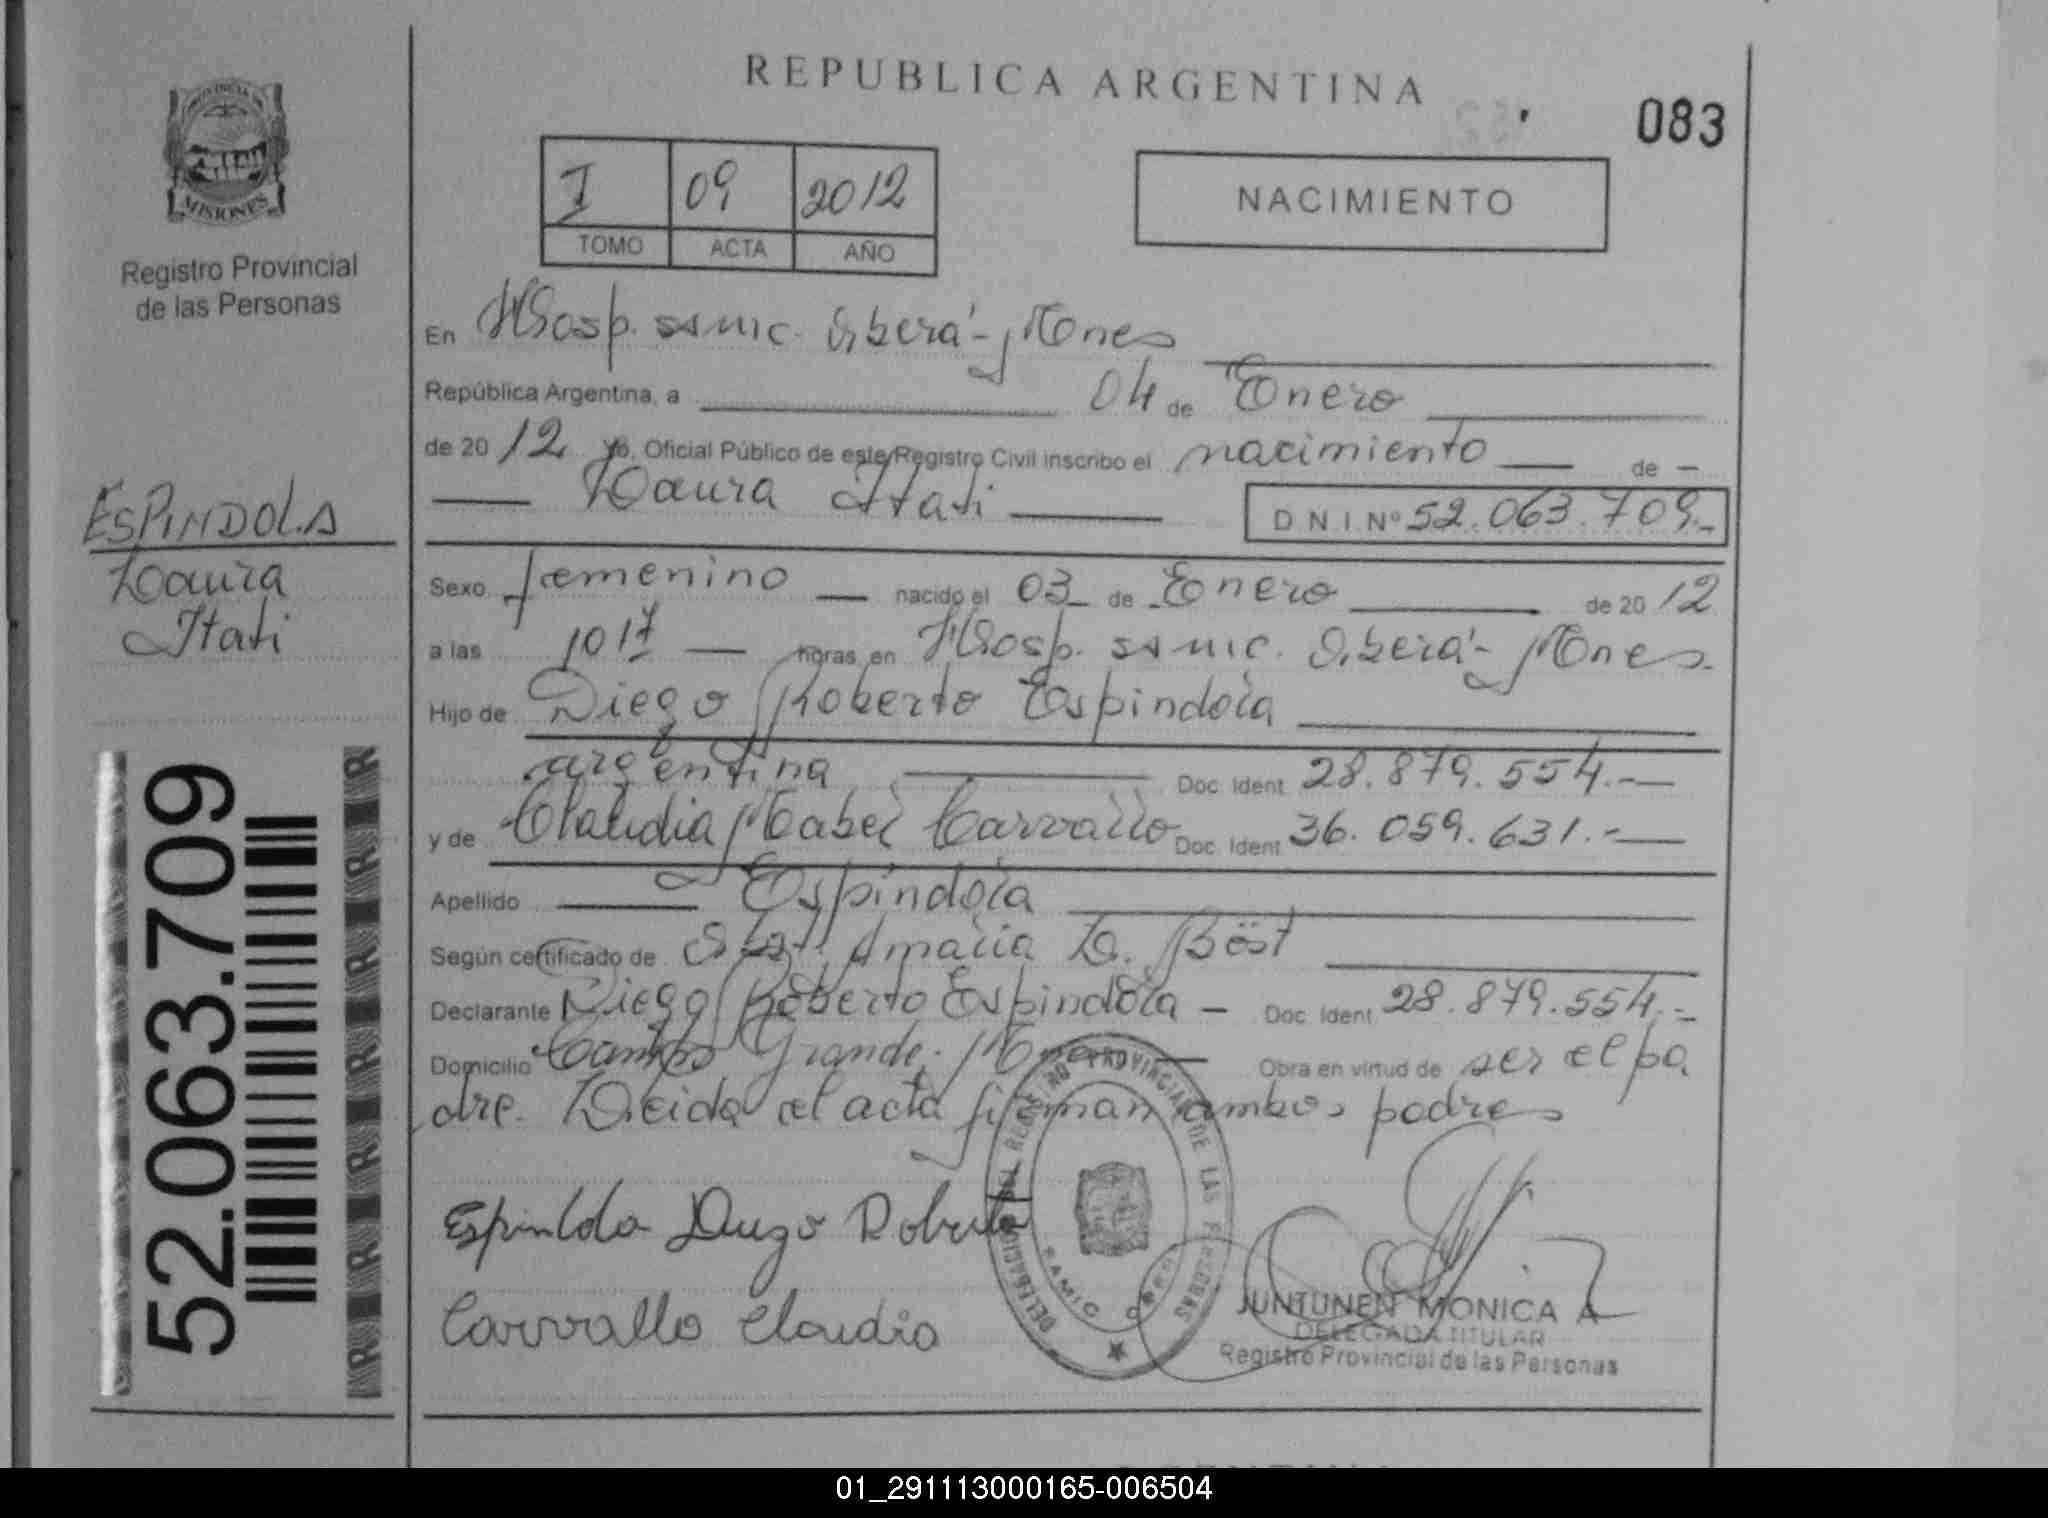 PROVINCIA DE
MISIONES
Registro Provincial
de las Personas
ESPINDOLA
Laura
Itati
52.063.709
REPUBLICA ARGENTINA
083
I 09 2012
TOMO ACTA AÑO
NACIMIENTO
En Hosp. Oberá - Mones
República Argentina, a 04 de Enero
de 20 12 Yo, Oficial Público de este Registro Civil inscribo el nacimiento de
Laura Itati
D N I Nº 52.063.709.-
Sexo femenino nacido el 03 de Enero de 20 12
a las 1017 horas, en Hosp. Oberá - Mones.
Hijo de Diego Roberto Espindola
argentina Doc. Ident. 28.879.554.-
y de Claudia Mabel Carvallo Doc. Ident. 36.059.631.-
Apellido Espindola
Según certificado de Obst. Amalia L. Böst
Declarante Diego Roberto Espindola - Doc. Ident. 28.879.554.-
Domicilio Campo Grande, Mnes Obra en virtud de ser el pa
dre. Leida el acta firman ambos padres
Espindola Diego Roberto
Carvallo Claudia
DELEGACION DEL REGISTRO PROVINCIAL DE LAS PERSONAS
SAMIC OBERA
JUNTUNEN MONICA A
DELEGADA TITULAR
Registro Provincial de las Personas
01_291113000165-006504